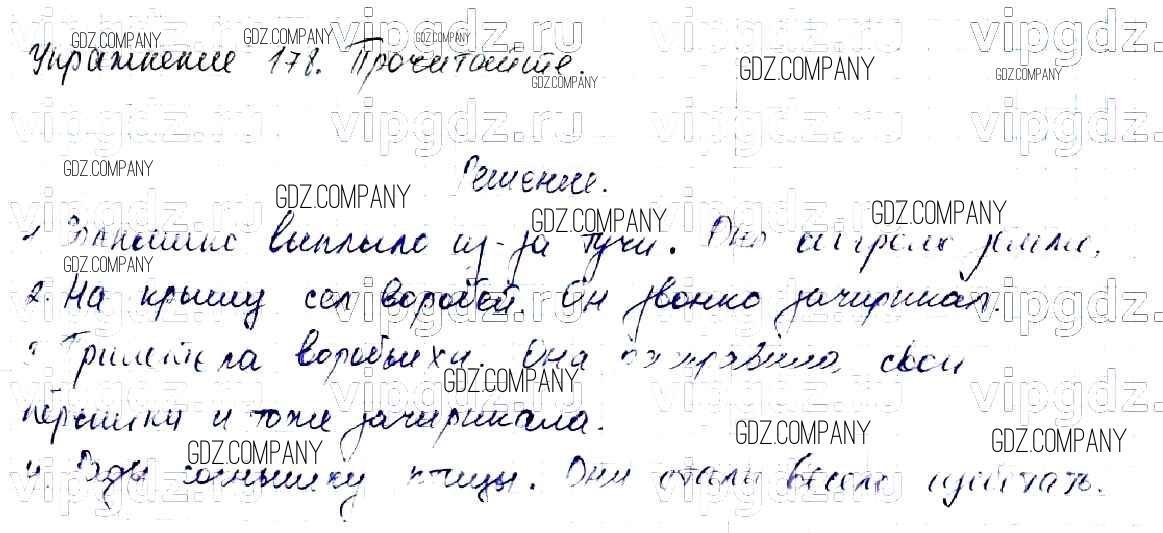 Упражнение 178. Прочитайте.
Решение.
1. Солнышко выплыло из-за тучи. Оно согрело землю.
2. На крышу сел воробей. Он звонко зачирикал.
3. Прилетела воробьиха. Она расправила свои
пёрышки и тоже зачирикала.
4. Рады солнышку птицы. Они стали весело щебетать.